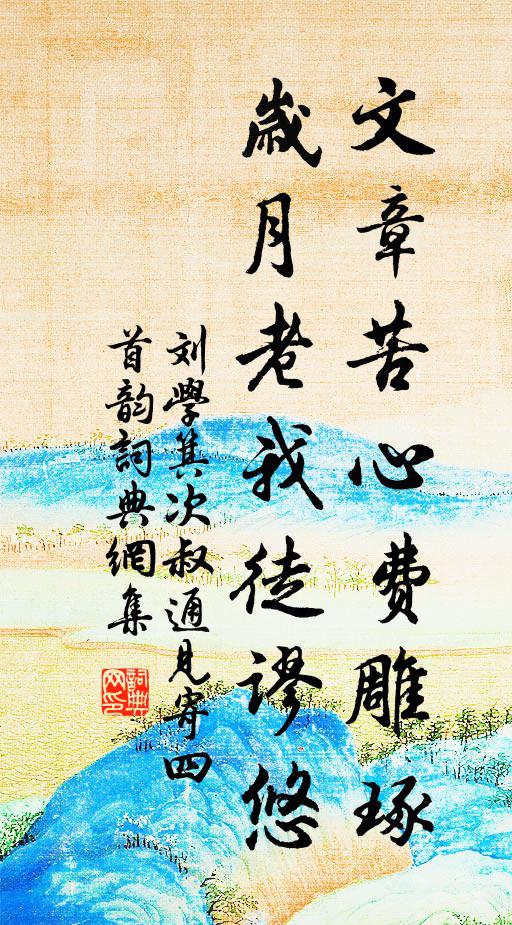 文章苦心费雕琢
歲月老我徒谬悠
刘學箕次叔通見寄四
首韵詞典網集
詞典
网印